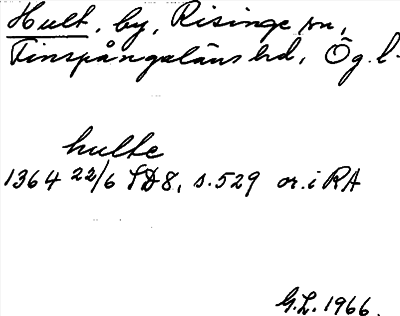 Hult, by, Risinge sn,
Finspångaläns hd, Ög.l.
hulte
1364 22/6 SD8, s.529 or. i RA
G.L. 1966.